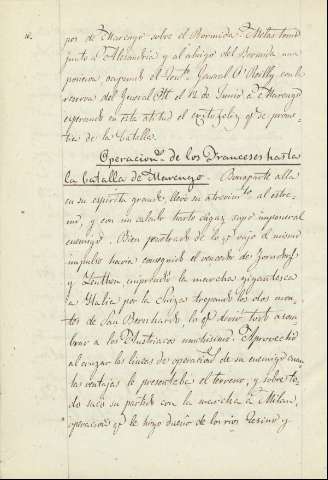 pos de Marengo sobre el Bormida. Melas tomó
junto a Alexandria y al abrigo del Bormida una
posicion ocupando el Tente. General O'Reilly con la
reserva del General Ott el 12 de Junio a Marengo
esperando en esta atitud el exito feliz qe. se prome-
tia de la batalla.
Operacions. de los Franceses hasta
la batalla de Marengo. Bonaparte alla
en su espiritu grande, llevó su atrevimto. al estre-
mo, y con un calculo harto sagaz, siguió imponer al
enemigo. Bien penetrado de lo qe. bajo el mismo
impulso havia conseguido el vencedor de Zorndorf
y Leuthen emprendió la marcha gigantesca
a Italia por la Suiza trepando los dos mon-
tes de San Bernhardo, lo qe. devió tanto asom-
brar a los Austriacos muchisimo. Aprovechó
al cruzar las lineas de operacions. de su enemigo cuan-
tas ventajas le presentaba el terreno, y sobre to-
do sacó su partido con la marcha a Milan,
operacion qe. le hizo dueño de los rios Tesino y